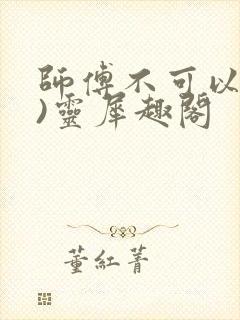 師傅不可以
)靈犀趣閣
董紅菁